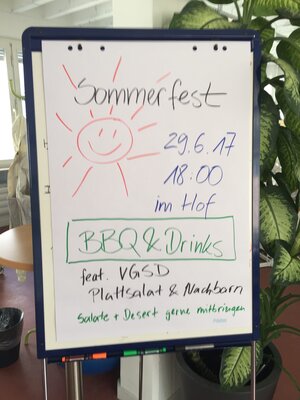 Sommerfest
29.6.17
18:00
im Hof
BBQ & Drinks
feat. VGSD
Plattsalat & Nachbarn
Salate + Desert gerne mitbringen